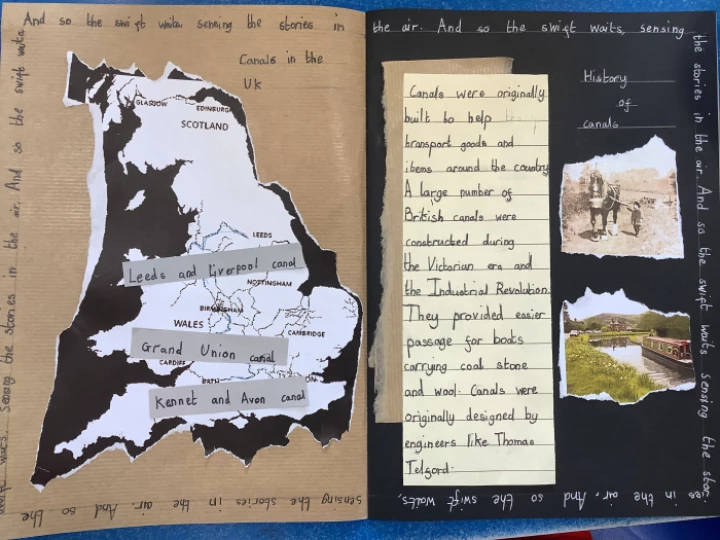 And so the swift waits sensing the stories in
the air. And so the swift waits, sensing
the stories in the air. And so the swift waits sensing the stor
ies in the air. And so the swift waits,
sensing the stories in the air. And so the
swift waits. Sensing the stories in the air. And so the swift waits
Canals in the
UK
GLASGOW
EDINBURGH
SCOTLAND
LEEDS
Leeds and Liverpool canal
NOTTINGHAM
BIRMINGHAM
WALES
CAMBRIDGE
Grand Union canal
CARDIFF
BATH
Kennet and Avon canal
Canals were originally
built to help
transport goods and
items around the country
A large number of
British canals were
constructed during
the Victorian era and
the Industrial Revolution
They provided easier
passage for boats
carrying coal stone
and wool. Canals were
originally designed by
engineers like Thomas
Telgord.
History
of
canals